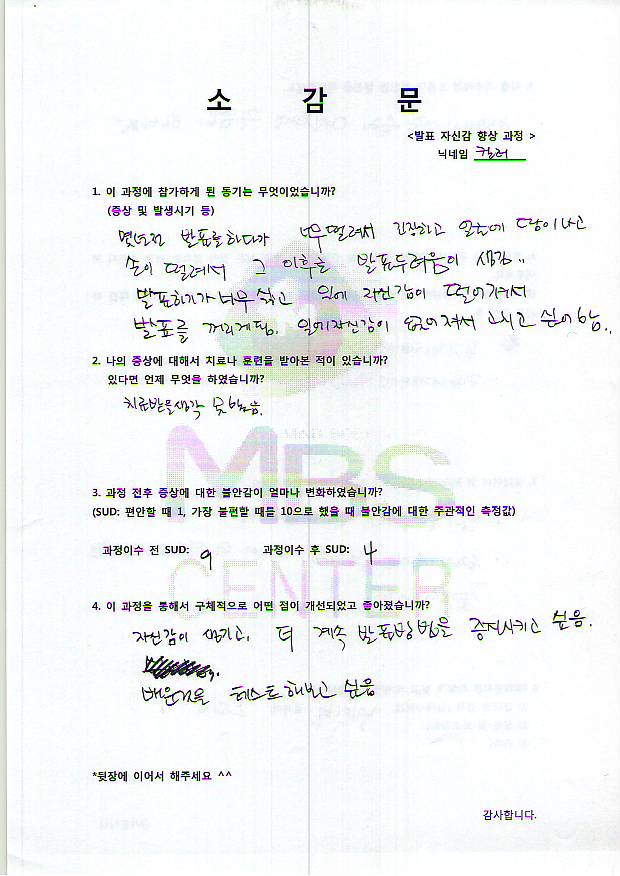 소 감 문
<발표 자신감 향상 과정 >
닉네임 컬러
1. 이 과정에 참가하게 된 동기는 무엇이었습니까?
(증상 및 발생시기 등)
몇년전 발표를 하다가 너무 떨려서 긴장하고 얼굴에 땀이 나고
손이 떨려서 그 이후로 발표두려움이 생김..
발표하기가 너무 싫고 일에 자신감이 떨어져서
발표를 꺼리게됨. 일에자신감이 없어져서 고치고 싶어함..
2. 나의 증상에 대해서 치료나 훈련을 받아본 적이 있습니까?
있다면 언제 무엇을 하였습니까?
치료받을생각 못했음.
MBS
CENTER
3. 과정 전후 증상에 대한 불안감이 얼마나 변화하였습니까?
(SUD: 편안할 때 1, 가장 불편할 때를 10으로 했을 때 불안감에 대한 주관적인 측정값)
과정이수 전 SUD: 9 과정이수 후 SUD: 4
4. 이 과정을 통해서 구체적으로 어떤 점이 개선되었고 좋아졌습니까?
자신감이 생기고, 더 계속 발표방법을 증진시키고 싶음.
배운것을 테스트해보고 싶음
*뒷장에 이어서 해주세요 ^^
감사합니다.